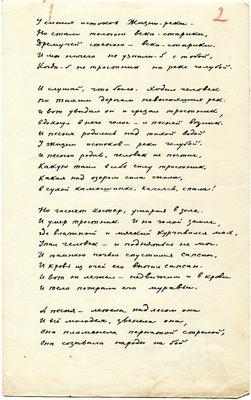 2
У синих истоков Жизни-реки.
Но стали стеною века-старики,
Дремучей стеною - века-старики.
И мы ничего не узнали б с тобой,
Когда б не тростник на реке голубой.
И слушай, что было. Ходил человек
по тихим дорогам рек
И вот увидал он и срезал тростник,
вдохнул в него голос - и песней возник.
И песня родилась над тихой водой
У Жизни истоков - реки голубой.
И песню родив, человек не постиг,
Какую таил в себе силу тростник,
Какая над озером сила жила,
в сухой камышинке, качаясь, спала!
Но гаснет костер, умирая в золе.
И умер тростник. И на голой земле,
где влажный и мягкий курчавился мох,
Упал человек - и подняться не мог.
И темною ночью спустился сапсан,
И кровь из очей его выпил сапсан.
И вот он лежал - недвижим и в крови
И тело пожрали его муравьи.
А песня - летела над лесом она
И всё молодея, звенела она
она пламенела пернатой стрелой,
Она созывала народы на бой